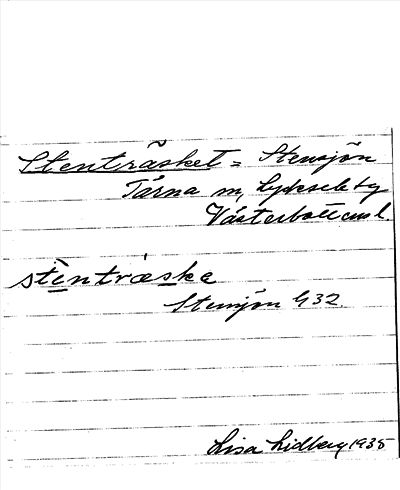 Stenträsket = Stensjön
Tärna sn, Lycksele tg
Västerbottens l.
stènträske
Stensjön G32
Lisa Lidberg 1935